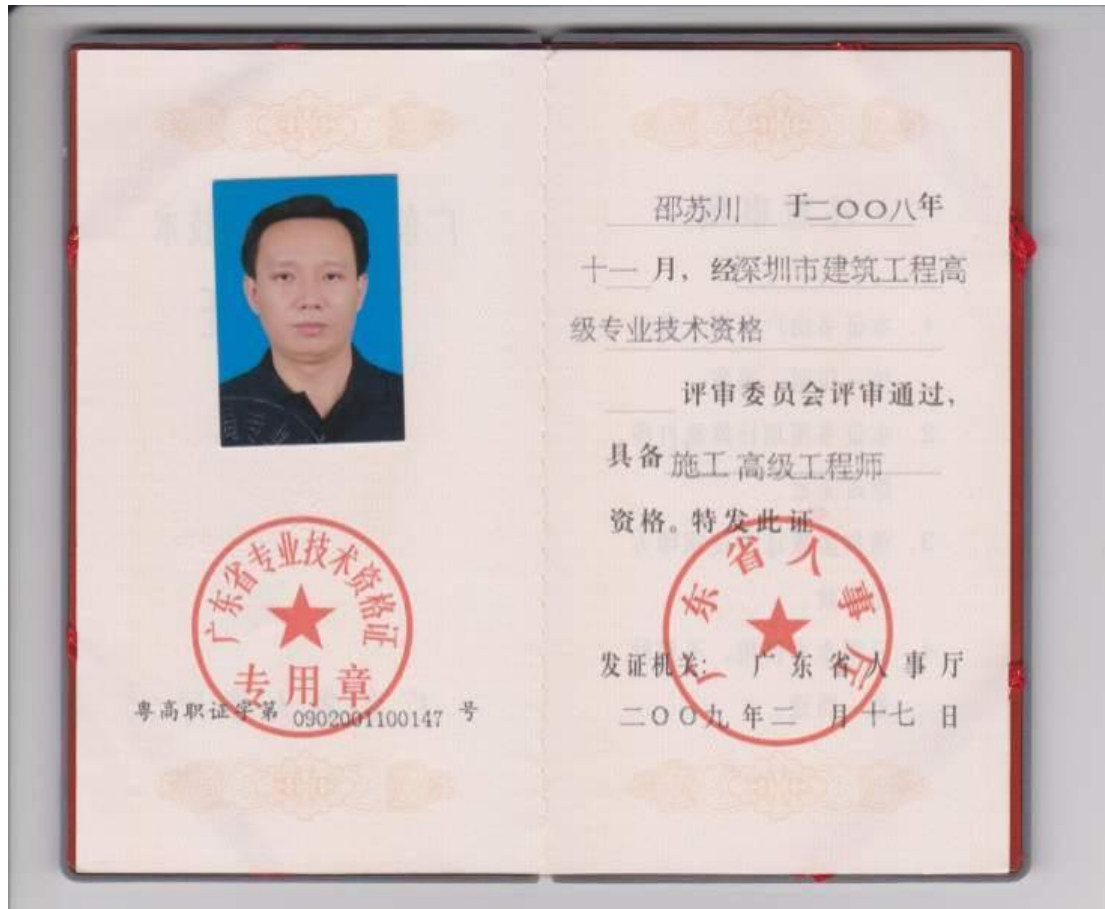 广东省专业技术资格证
专用章
粤高职证字第 0902001100147 号
邵苏川 于二〇〇八年
十一 月，经深圳市建筑工程高
级专业技术资格
评审委员会评审通过，
具备 施工 高级工程师
资格。特发此证
广东省人事厅
发证机关： 广东省人事厅
二〇〇九 年二 月十七 日